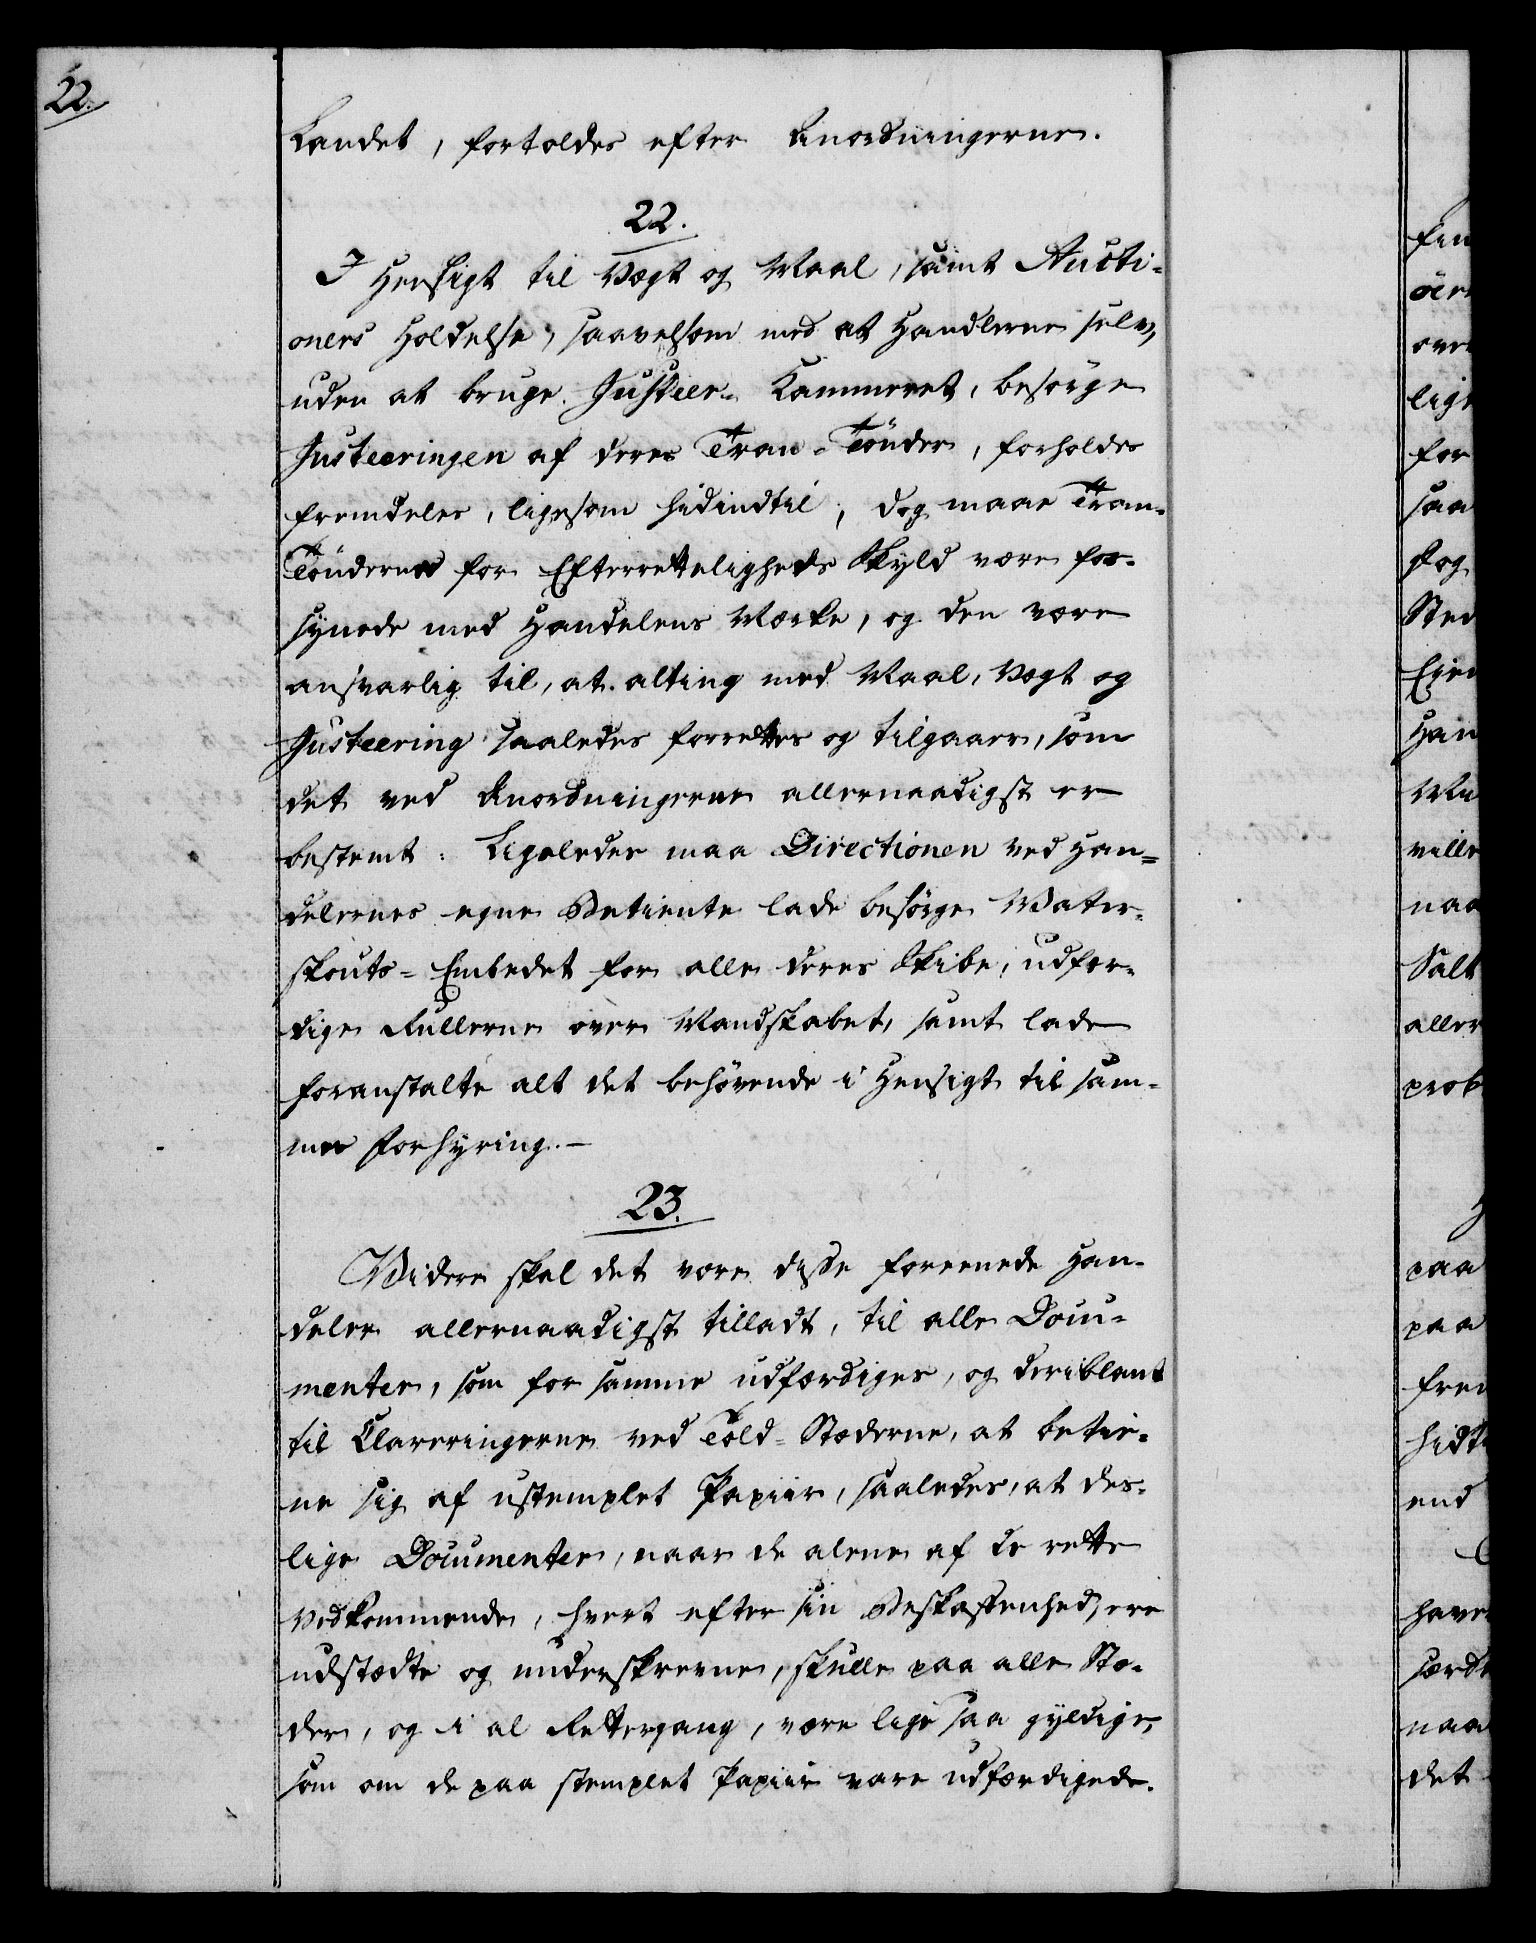 22.
Landet, fortoldes efter Anordningerne.
22.
I Hensigt til Vægt og Maal, samt Aucti-
oners Holdelse, saavelsom med at Handlerne selv,
uden at bruge Justeer-Kammeret, besørge
Justeeringen af deres Tran-Tønder, forholdes
fremdeles, ligesom hidindtil, dog maae Tran-
Tønderne for Efterretteligheds Skyld være for-
synede med Handelens Mærke, og den være
ansvarlig til, at alting med Maal, Vægt og
Justeering saaledes forrettes og tilgaaer, som
det ved Anordningerne allernaadigst er
bestemt: Ligeledes maa Directionen ved Han-
delernes egne Betiente lade besørge Water-
skouts-Embedet for alle deres Skibe, udfær-
dige Rullerne over Mandskabet, samt lade
foranstalte alt det behøvende i Hensigt til sam-
mes Forhyring.-
23.
Videre skal det være disse foreenede Han-
deler allernaadigst tilladt, til alle Docu-
menter, som for samme udfærdiges, og deriblant
til Clareringerne ved Told-Stæderne, at betie-
ne sig af ustemplet Papiir, saaledes, at des-
lige Documenter, naar de alene af de rette
Vedkommende, hvert efter sin Beskaffenhed, ere
udstædte og underskrevne, skulle paa alle Stæ-
der, og i al Rettergang, være lige saa gyldige,
som om de paa stemplet Papiir vare udfærdigede.
ligt
for
saa
og
Sted
Han
ville
naa
Salt
aller
prob
paa
paa
frem
hidt
end
have
særde
naa
det